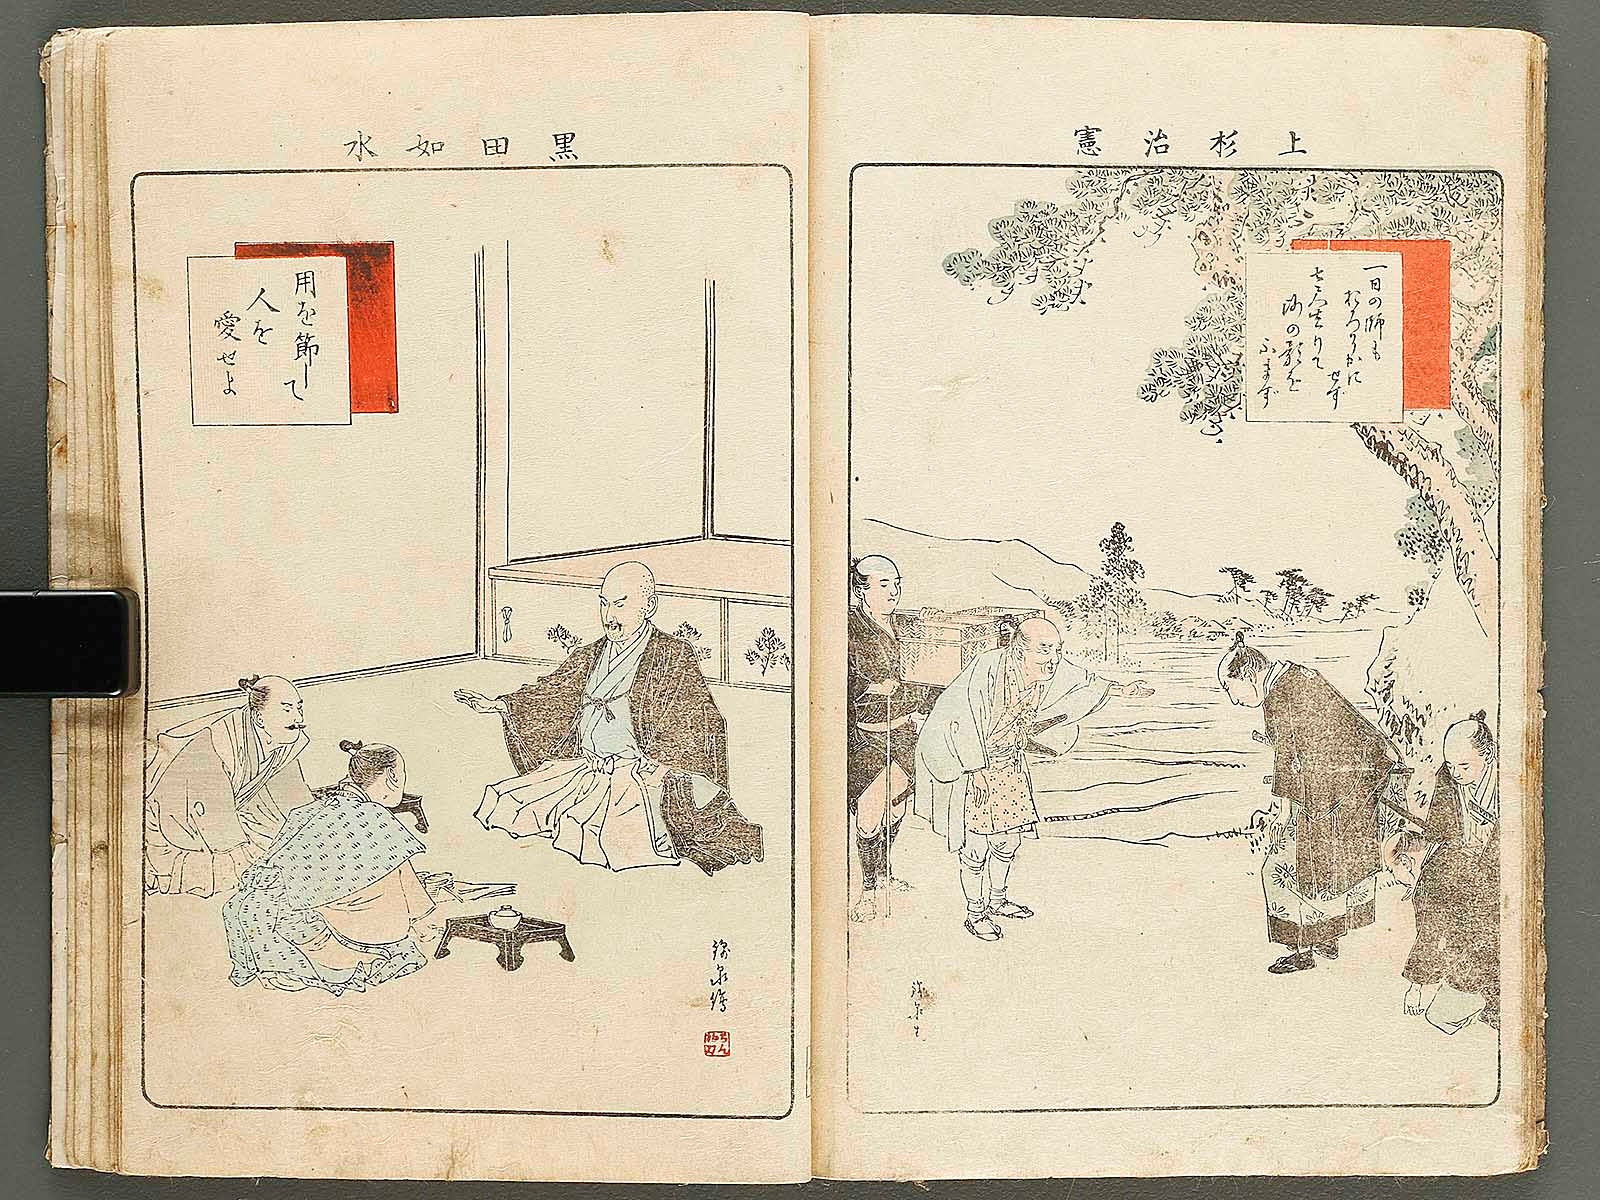 上杉治憲
一日の師も
おろそかに
せず
七尺去りて
師の影を
ふまず
黒田如水
用を節して
人を
愛せよ